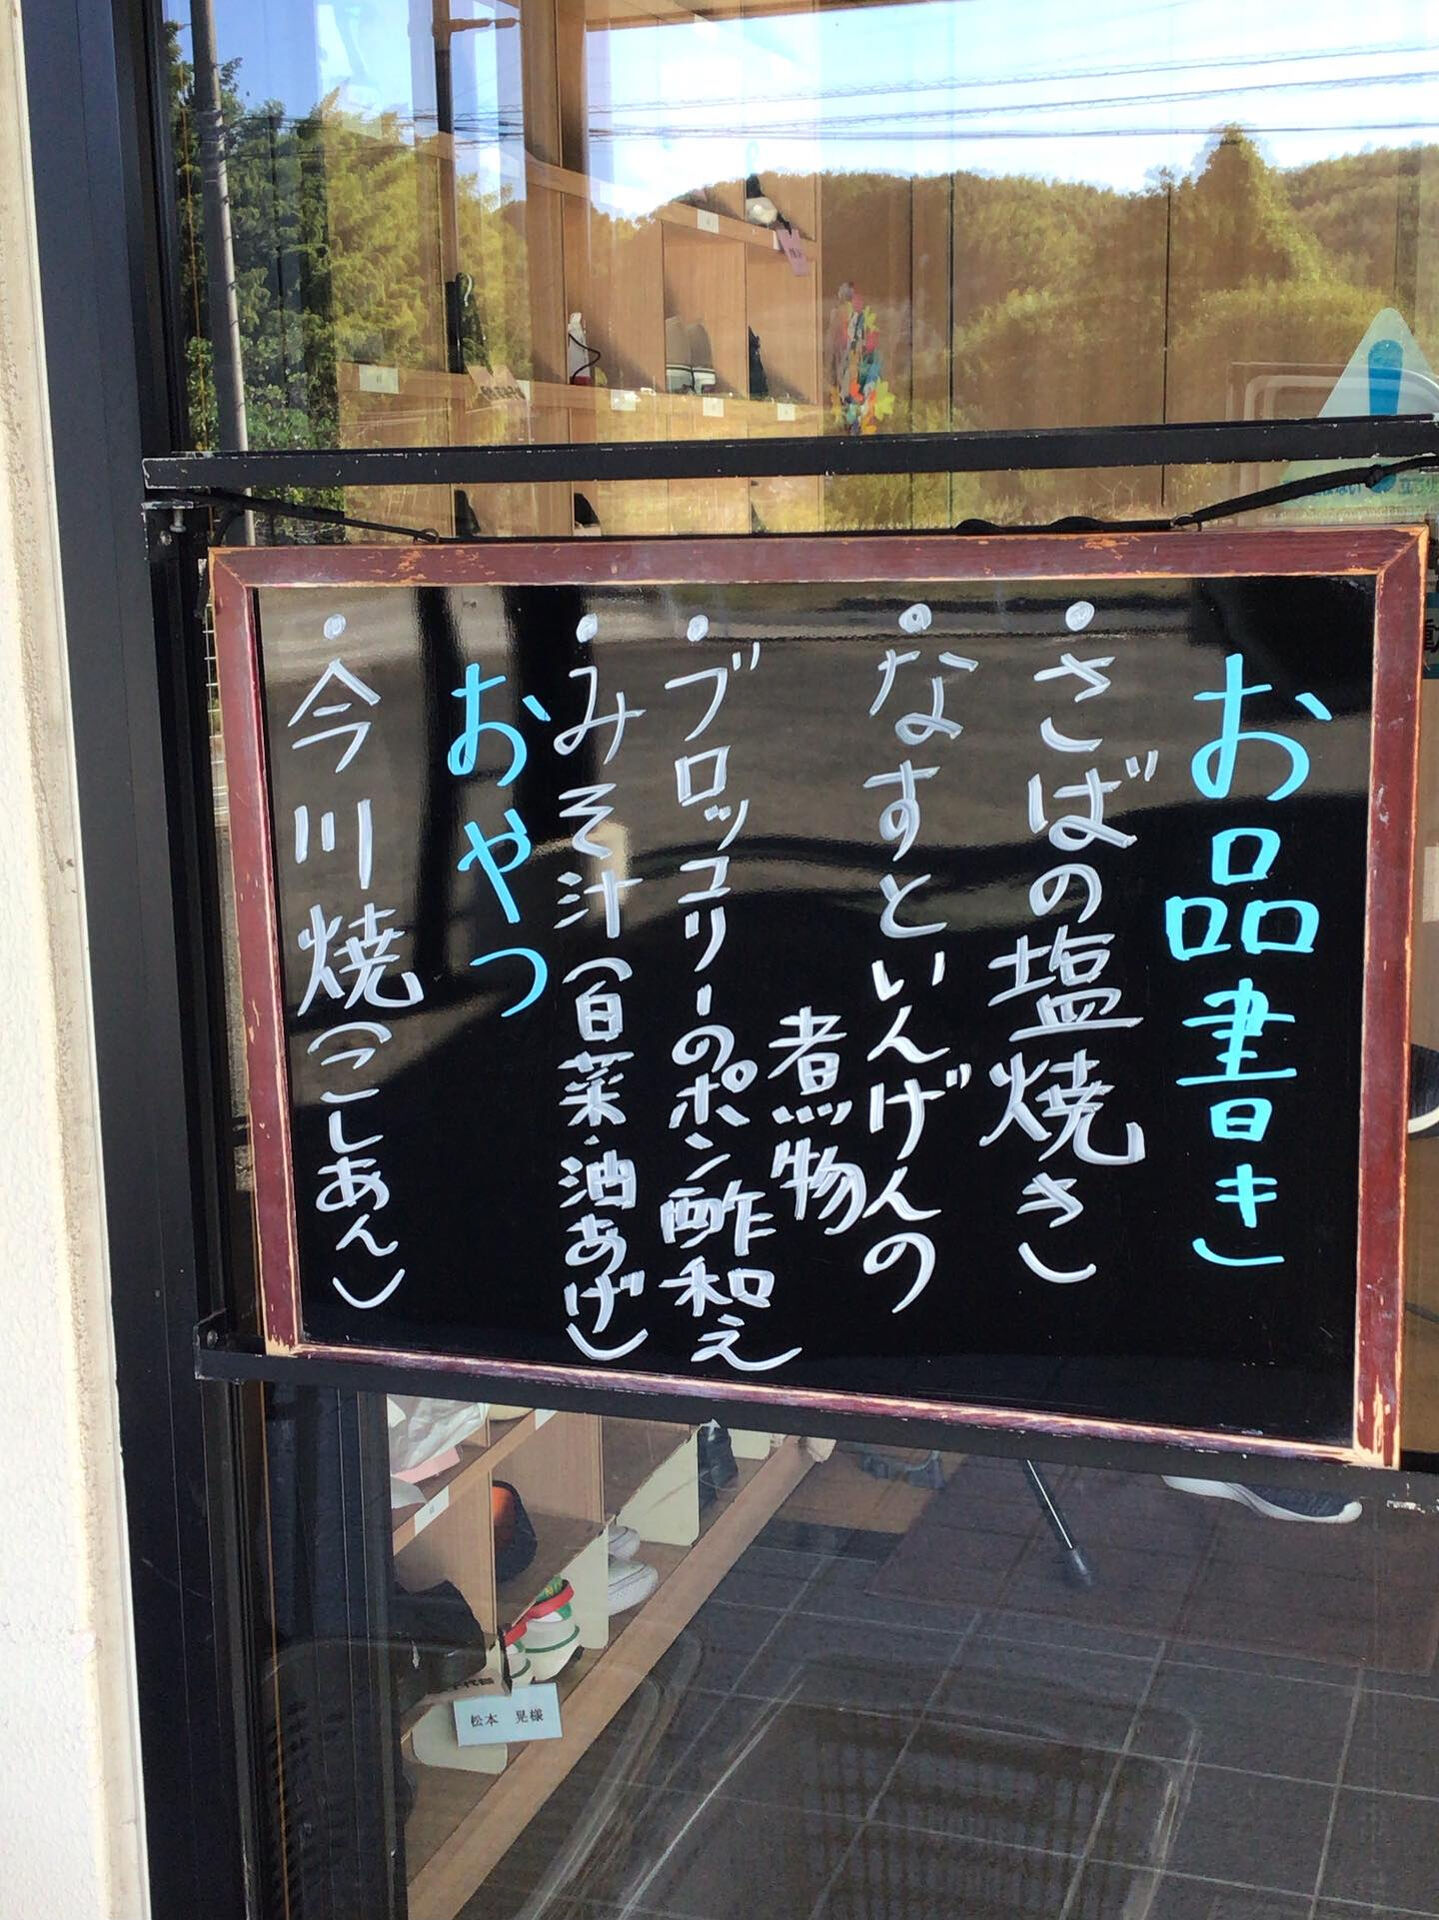 お品書き
・さばの塩焼き
・なすといんげんの
煮物
・ブロッコリーのポン酢和え
・みそ汁(白菜・油あげ)
おやつ
・今川焼(こしあん)
松本 晃様